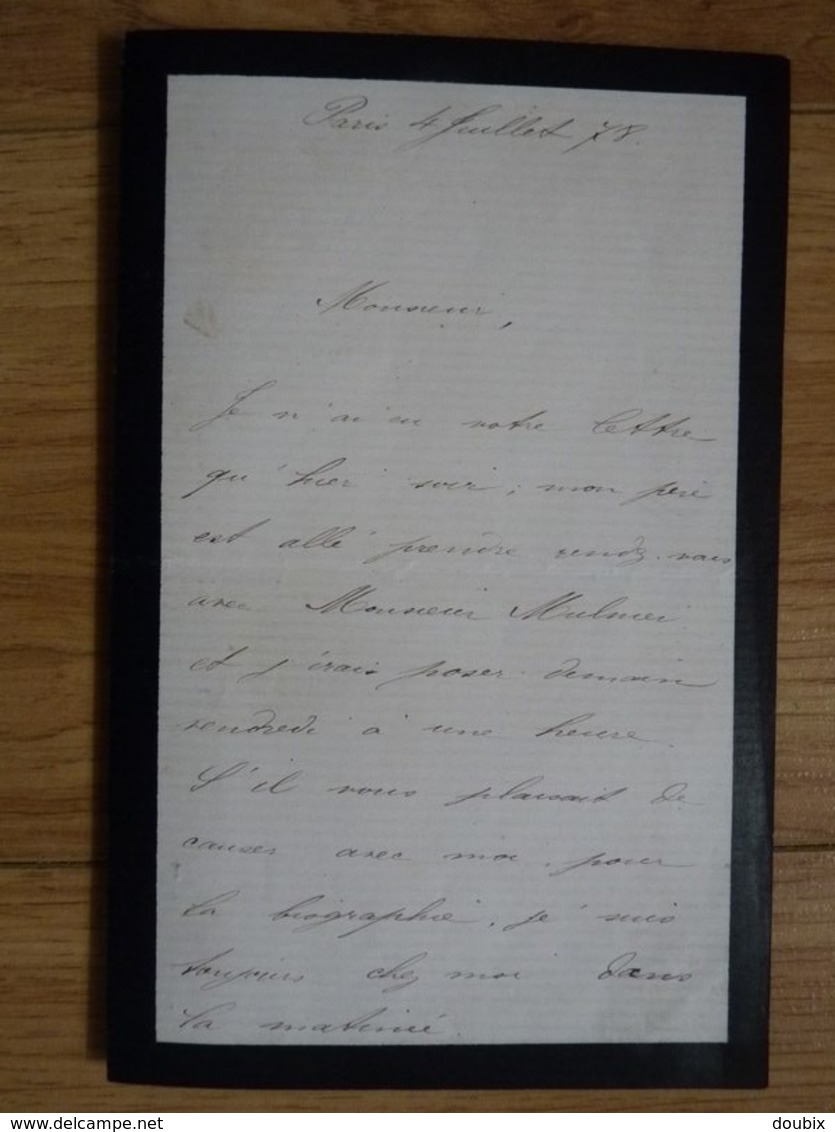 Paris 4 Juillet 78.
Monsieur,
Je n'ai eu votre lettre
qu'hier soir ; mon père
est allé prendre rendez-vous
avec Monsieur Mulnier
et j'irais poser demain
vendredi à une heure.
S'il vous plaisait de
causer avec moi, pour
la biographie, je suis
toujours chez moi dans
la matinée.
www.delcampe.net
doubix